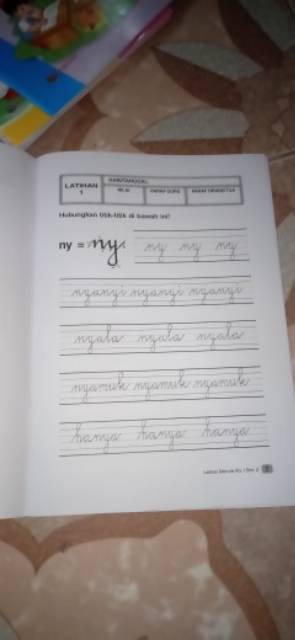 LATIHAN
1
HARI/TANGGAL:
NILAI PARAF GURU PARAF ORANG TUA
Hubungkan titik-titik di bawah ini!
ny = ny ny ny ny
nyanyi nyanyi nyanyi
nyala nyala nyala
nyamuk nyamuk nyamuk
hanya hanya hanya